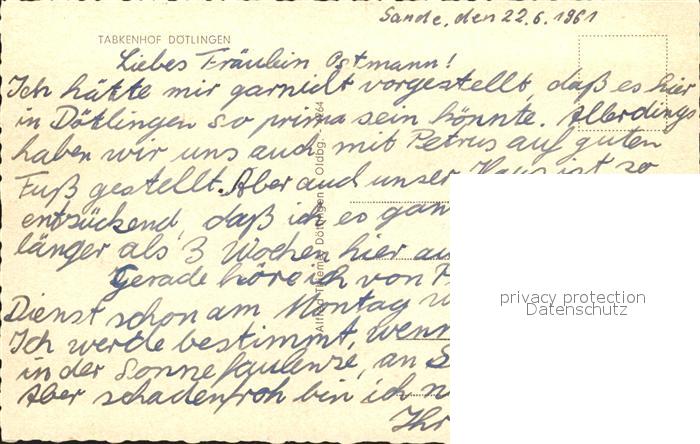 Sande, den 22.6.1961
TABKENHOF DÖTLINGEN
Liebes Fräulein Ostmann!
Ich hätte mir garnicht vorgestellt, daß es hier
in Dötlingen so prima sein könnte. Allerdings
haben wir uns auch mit Petrus auf guten
Fuß gestellt. Aber auch unser Haus ist so
entzückend, daß ich es gan
länger als 3 Wochen hier au
Gerade höre ich von F
Dienst schon am Montag w
Ich werde bestimmt, wenn
in der Sonne faulenze, an S
Aber schadenfroh bin ich n
Ihr
Dötlingen i. Oldbg.
privacy protection
Datenschutz